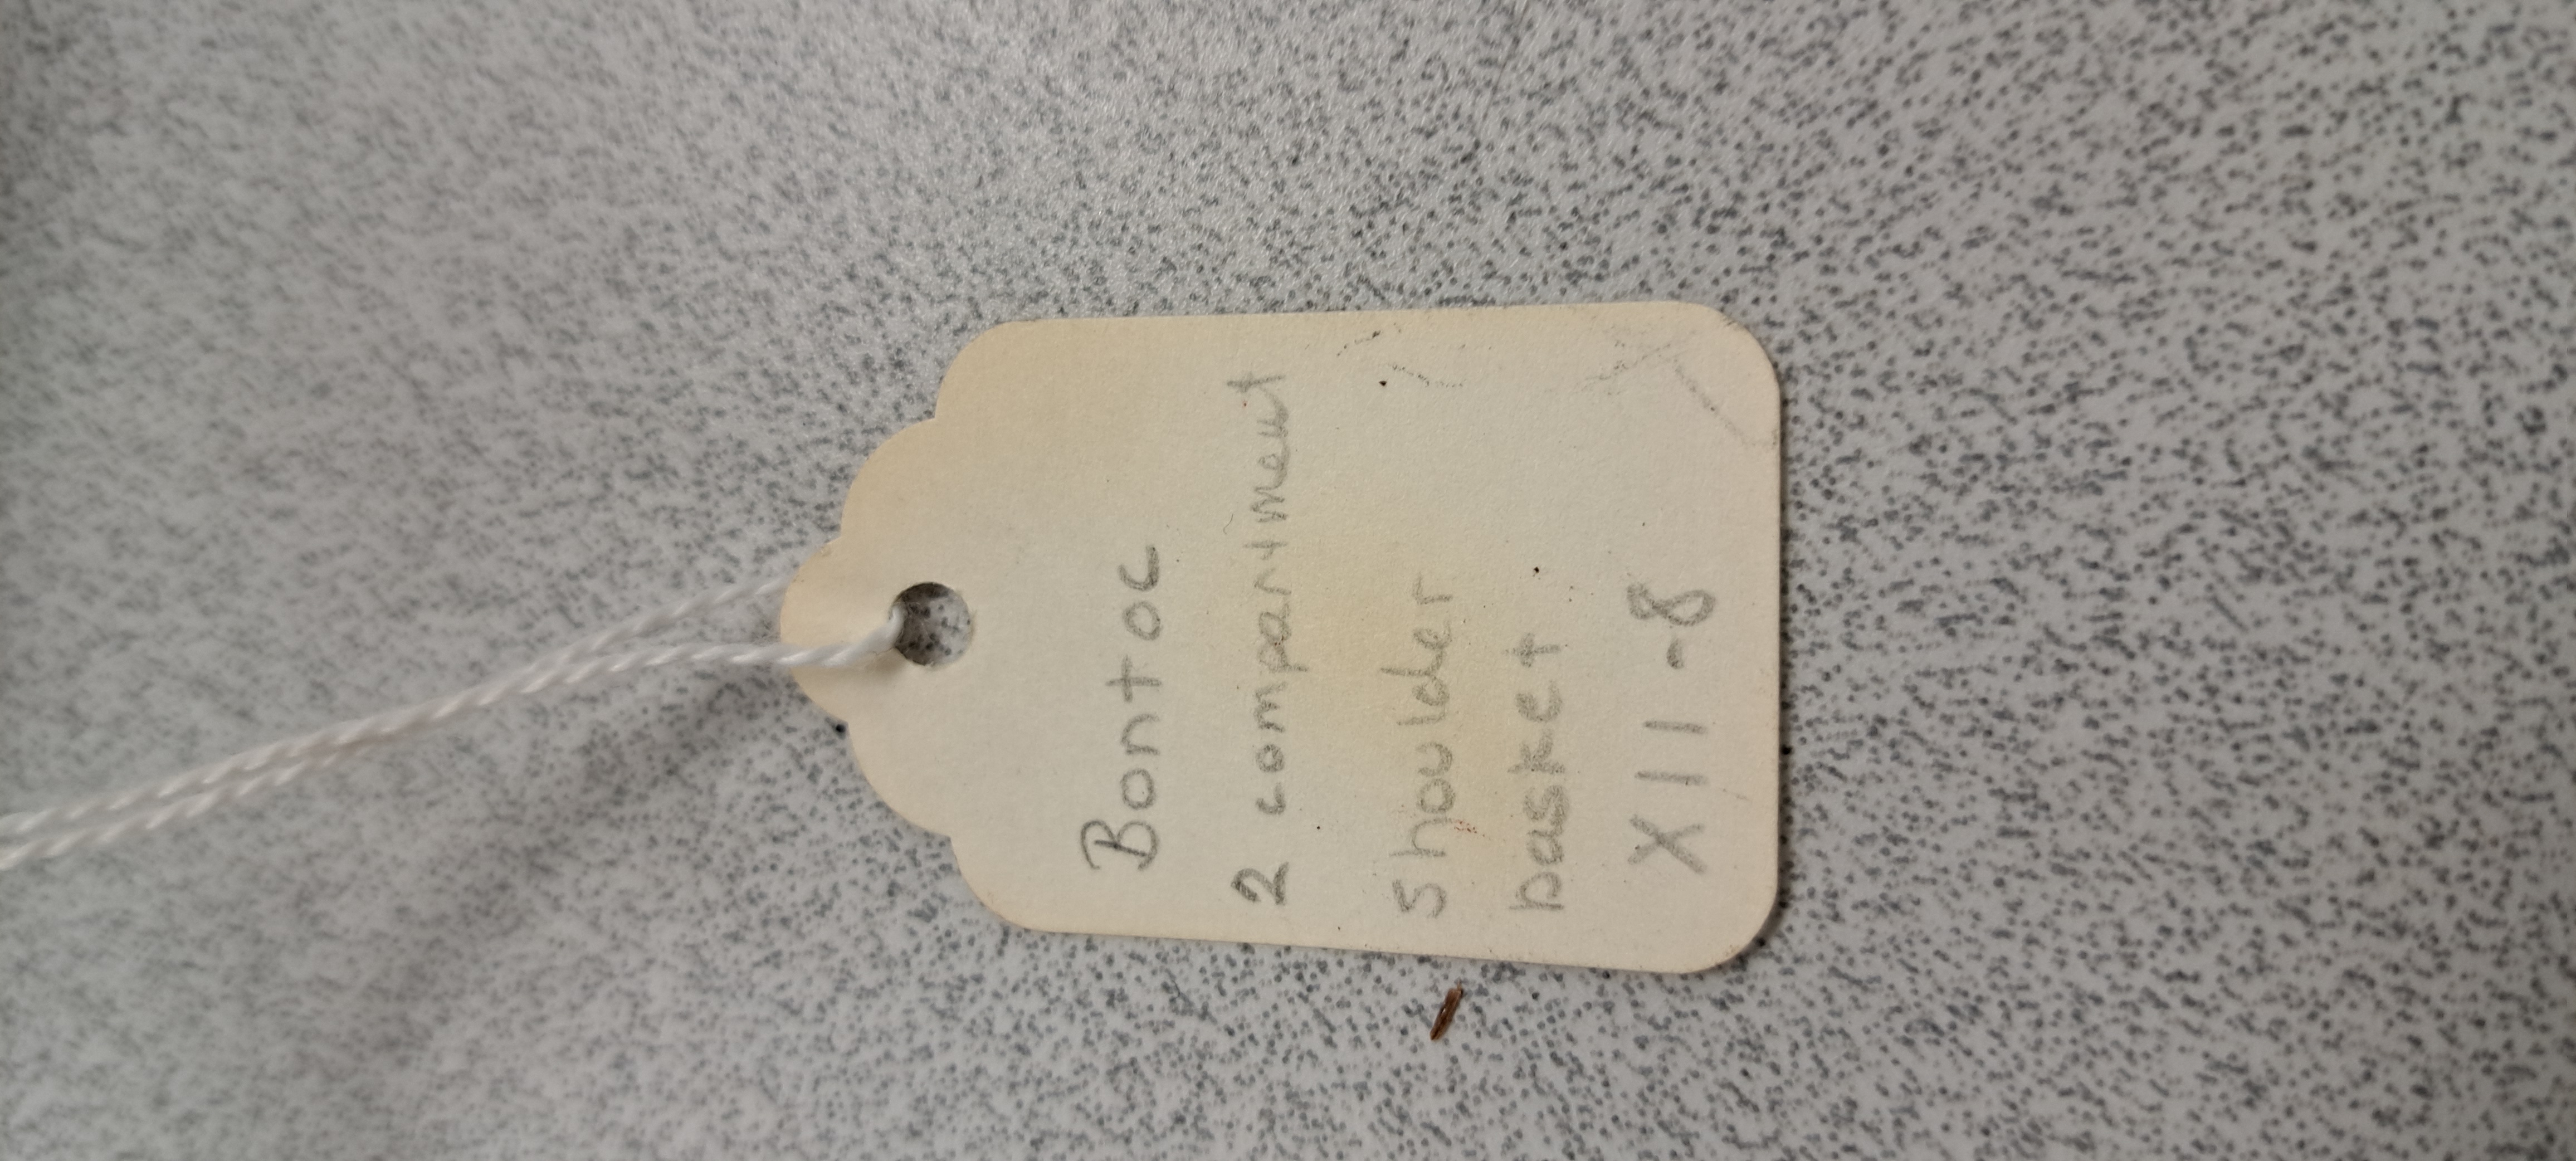 Bontoc
2 compartment
shoulder
basket
XII-8